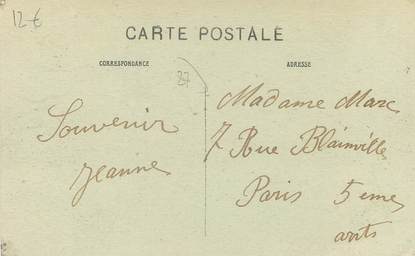 12 €
CARTE POSTALE
CORRESPONDANCE
ADRESSE
37
Souvenir
Jeanine
Madame Marc
7 Rue Blainville
Paris 5 eme
arrts